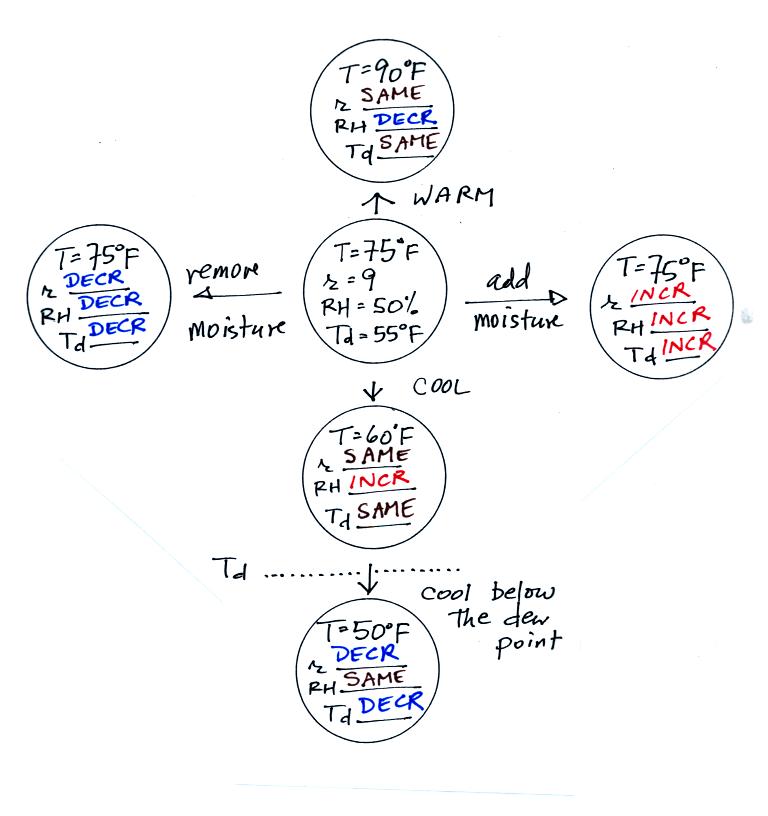 T=90°F
r SAME
RH DECR
Td SAME
WARM
T=75°F
r DECR
RH DECR
Td DECR
remove
moisture
T=75°F
r = 9
RH = 50%
Td = 55°F
add
moisture
T=75°F
r INCR
RH INCR
Td INCR
COOL
T=60°F
r SAME
RH INCR
Td SAME
Td
cool below
the dew
point
T=50°F
r DECR
RH SAME
Td DECR